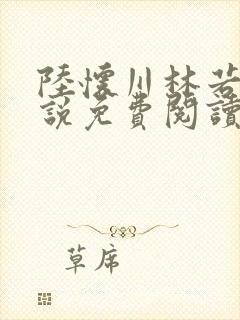 陸懷川林若
說免費閱讀
草席